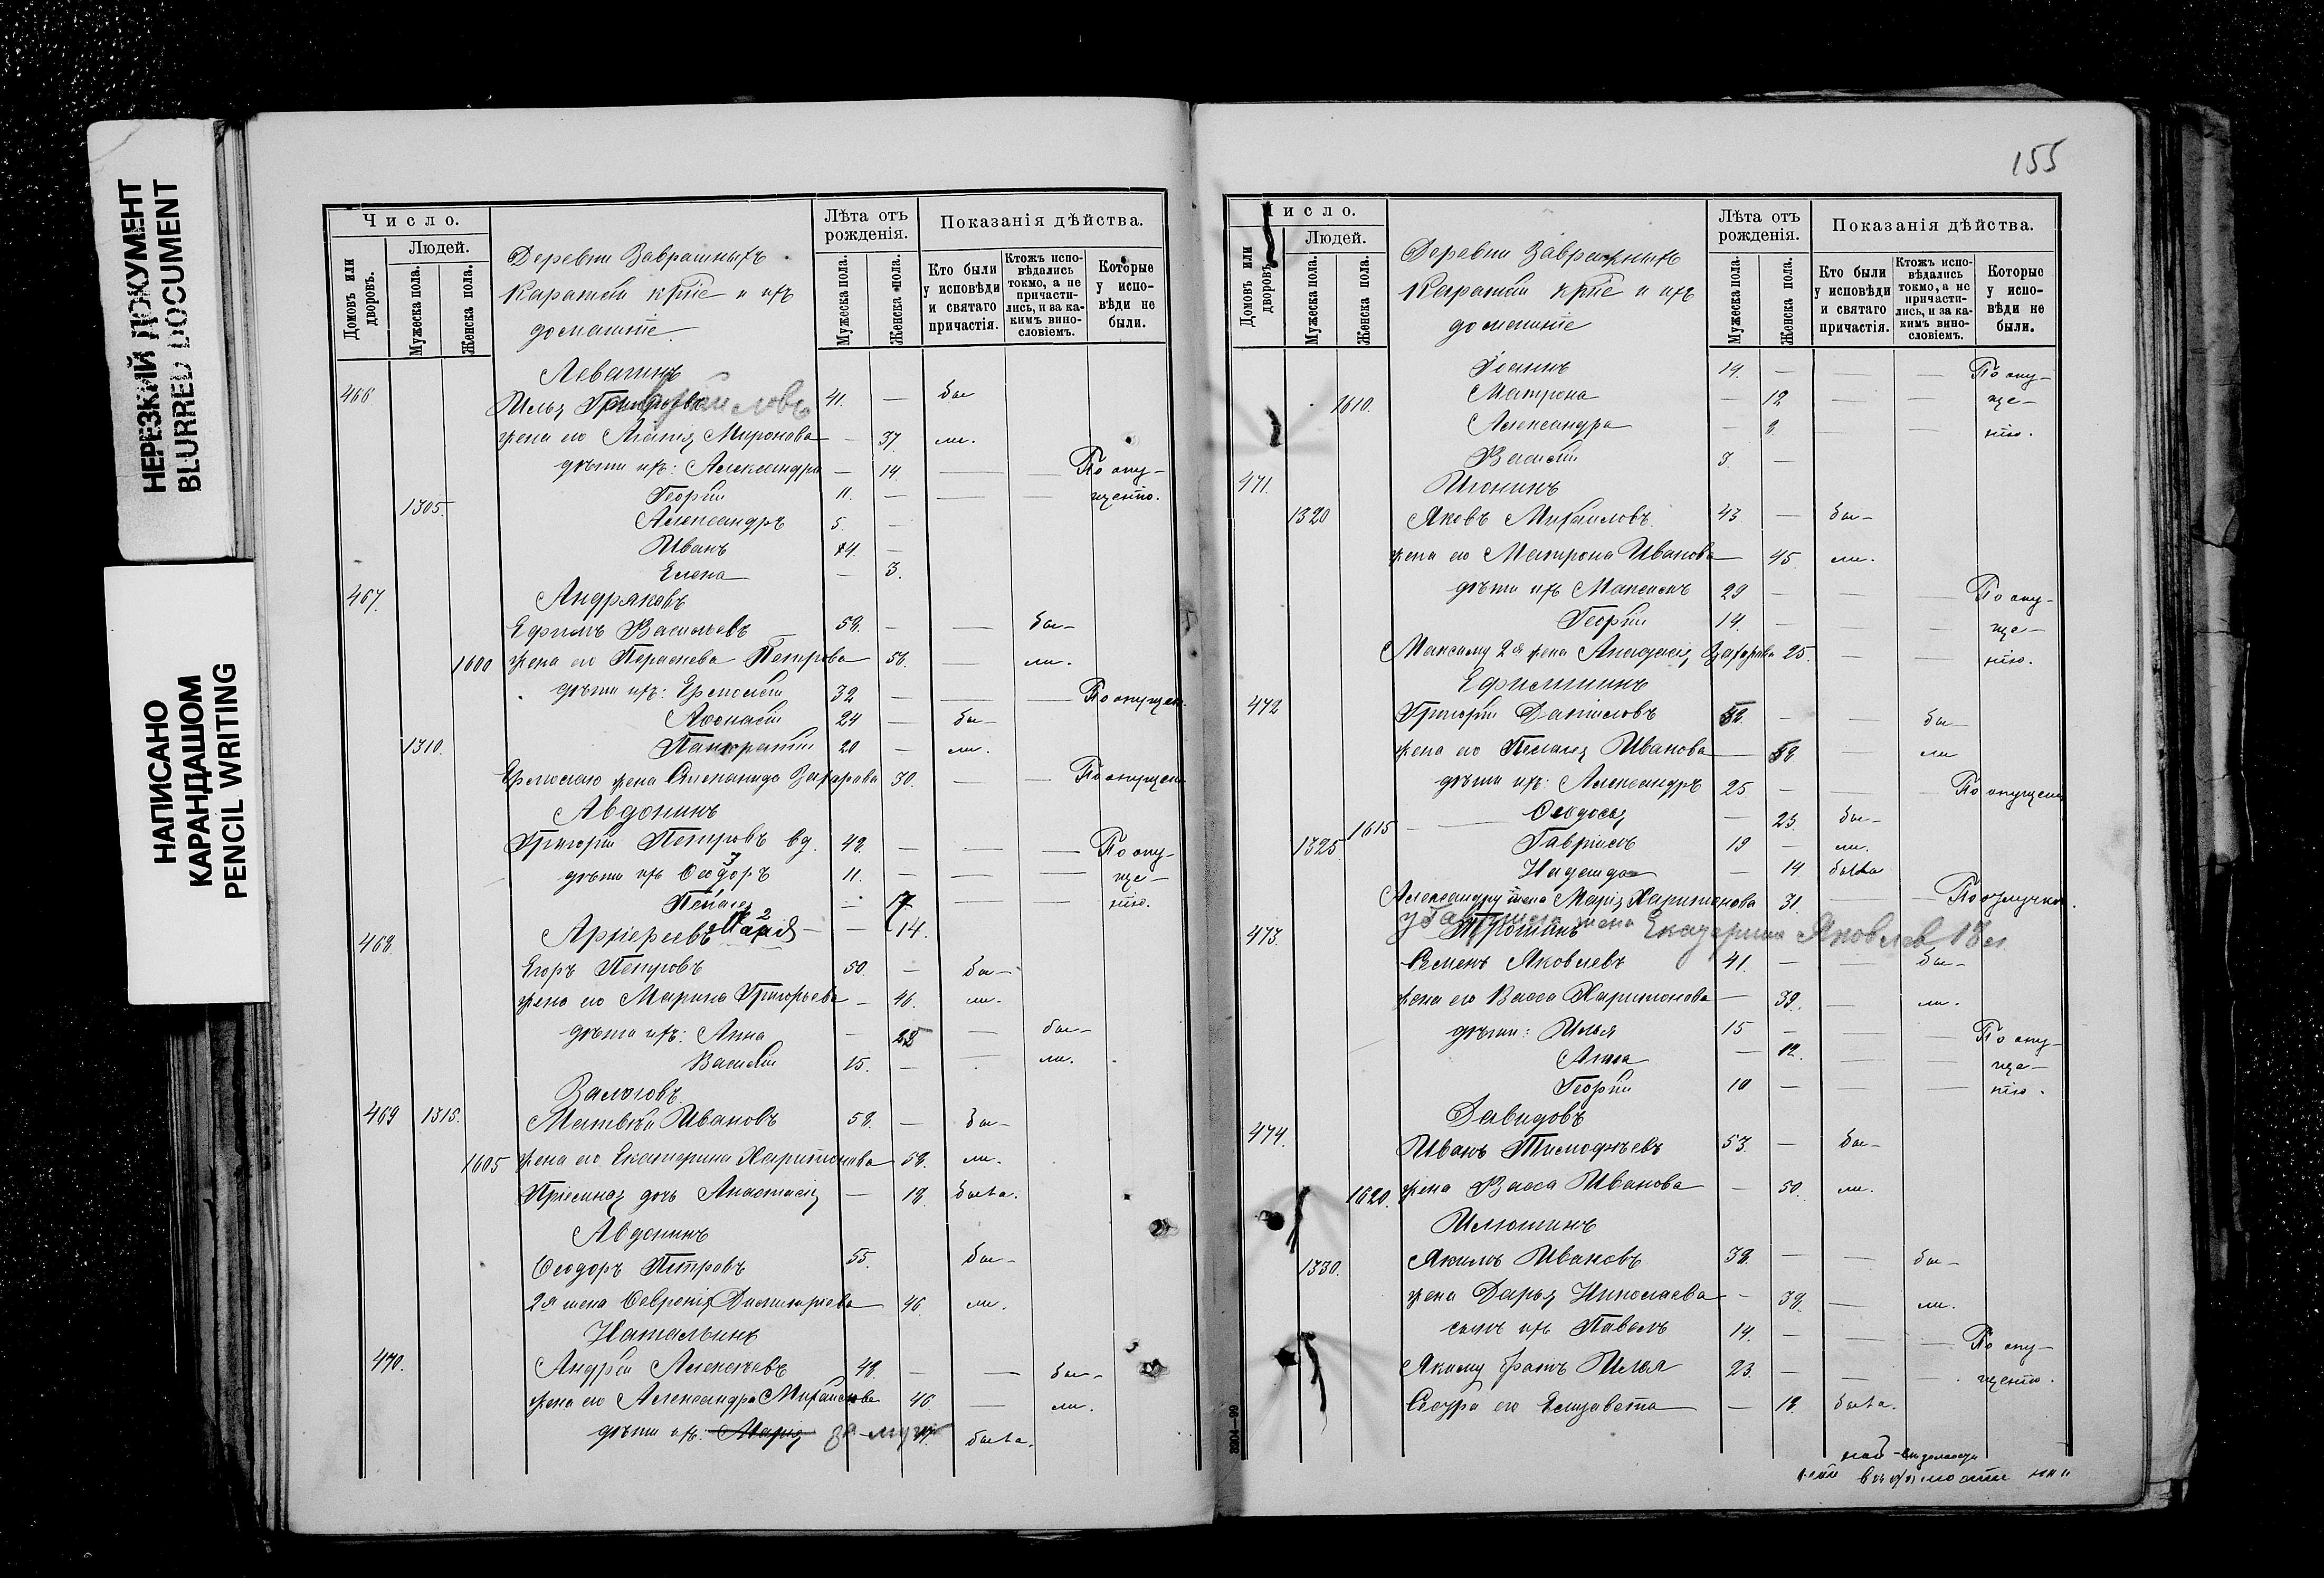 НЕРЕЗКИЙ ДОКУМЕНТ
BLURRED DOCUMENT
НАПИСАНО
КАРАНДАШОМ
PENCIL WRITING
Число.
Людей.
Домовъ или дворовъ.
Мужеска пола.
Женска пола.
Деревни
крⷭ҇не и ихъ
домашніе
Лѣта отъ рожденія.
Мужеска пола.
Женска пола.
Показанія дѣйства.
Кто были у исповѣди и святаго причастія.
Ктожъ исповѣдались токмо, а не причастились, и за какимъ винословіемъ.
Которые у исповѣди не были.
466 Левагинъ
Илья 41. — бы
жена его Агапія Миронова — 37. ли.
дѣти ихъ: Александра — 14. — — По опу-
Георгій 11. — — — щенію.
1305. Александръ 5. —
Иванъ —
Елена — 3.
467. Андряковъ
Ефимъ Васильевъ 58. — — бы-
1600 жена его Параскева Петрова 58. — ли.
дѣти ихъ: Ермолай 32 — — — По опущен.
Аѳонасій 24 — бы-
1310. Панкратій 20 — ли.
Ермолаю жена Александра Захарова 30. — — По опущен.
Авдонинъ
Григорій Петровъ вд. 48. — — — По опу-
дѣти ихъ Ѳеодоръ 11. — — — ще-
Пелагея — — — — нію.
Марія — 14.
468. Архіереевъ
Егоръ Петровъ 50. — бы-
жена его Марина Григорьева — 46. ли.
дѣти ихъ: Анна — — бы-
Василій 15. — ли.
469 1315. Матвѣй Ивановъ 58. — бы-
1605 жена его Екатерина Харитонова 58. ли.
Пріемная дочь Анастасія — 18. была.
Авдонинъ
Ѳеодоръ Петровъ 55. бы-
2я жена Ѳевронія Димитріева 46. ли.
Натальинъ
470. Андрей Алексѣевъ 48. — — бы-
жена его Александра Михайлова 46 — ли.
дѣти ихъ: Марія за-муж была.
155
Число.
Людей.
Домовъ или дворовъ.
Мужеска пола.
Женска пола.
Деревни
крⷭ҇не и ихъ
домашніе
Лѣта отъ рожденія.
Мужеска пола.
Женска пола.
Показанія дѣйства.
Кто были у исповѣди и святаго причастія.
Ктожъ исповѣдались токмо, а не причастились, и за какимъ винословіемъ.
Которые у исповѣди не были.
Іоаннъ 14. — — — По опу-
1610. Матрона — 12 — — ще-
Александра — 8. — — нію.
Василій 3. —
471. Июнинъ
1320 Яковъ Михайловъ 43 — бы-
жена его Матрона Иванова — 45. ли.
дѣти ихъ Максимъ 29 — — — По опу-
Георгій 14. — — — ще-
Максиму 2я жена Анастасія Захарова 25. — — нію.
472 Ефимшинъ
Григорій Даниловъ — — бы-
жена его Пелагея Иванова — — ли
дѣти ихъ: Александръ 25 — — — По опущенію
1615 Ѳеодосія — 23. бы-
1325. Гавріилъ 19 — ли.
Надежда — 14 была
Александру жена Марія Харитонова 31. — — По отлучкѣ.
у Гавриила жена Екатерина Яковлев 18 л.
473. Трошинъ
Семенъ Яковлевъ 41. — — бы-
жена его Васса Харитонова — 39. — ли.
дѣти: Илья 15 — — — По опу-
Анна — 12. — — ще-
Георгій 10 — — — нію.
Давидовъ
474. Иванъ Тимофѣевъ 53. — бы-
1620. жена Васса Иванова — 50. ли.
Илюшинъ
1330. Якимъ Ивановъ 38. — — бы-
жена Дарья Николаева — 38. — ли.
сынъ ихъ Павелъ 14. — — — По опу-
Якиму братъ Илья 23. — — — щенію.
Сестра его Елизавета — 18. была.
3204—99